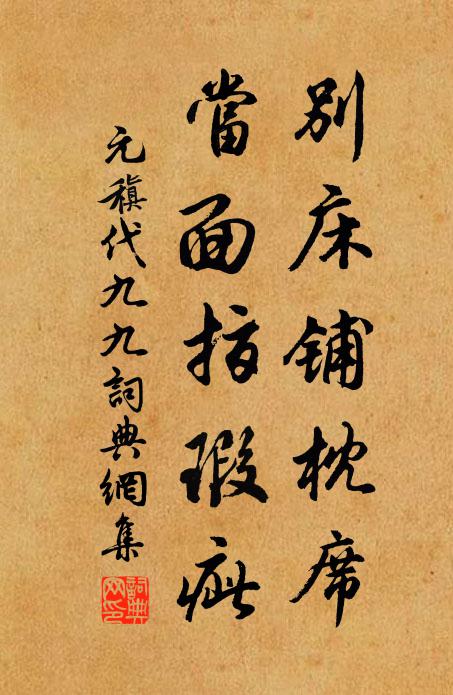 別床鋪枕席
當面指瑕疵
元稹代九九詞典網集
詞典網印